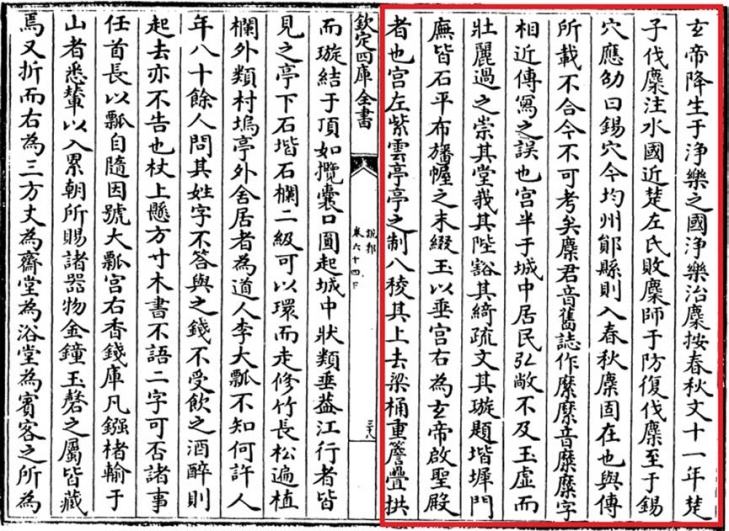 玄帝降生于淨樂之國淨樂治麇按春秋文十一年楚
子伐麇注水國近楚左氏敗麇師于防復伐麇至于錫
穴應劭曰錫穴今均州鄖縣則入春秋麇固在也與傳
所載不合今不可考矣麇君音舊誌作縻縻音麋麋字
相近傳寫之誤也宮半于城中居民弘敞不及玉虛而
壯麗過之崇其堂我其陛豁其綺疏文其璇題堦墀門
廡皆石平布旛幢之末綴玉以垂宮右為玄帝啟聖殿
者也宮左紫雲亭亭之制八稜其上去梁桷重簷疊拱
欽定四庫全書
說郛
卷六十四下
三十八
而璇結于頂如攬囊口圓起城中狀類垂葢江行者皆
見之亭下石堦石欄二級可以環而走修竹長松遍植
欄外類村塢亭外舍居者為道人李大瓢不知何許人
年八十餘人問其姓字不答與之錢不受飲之酒醉則
起去亦不告也杖上懸方寸木書不語二字可否諸事
任首長以瓢自隨因號大瓢宮右香錢庫凡鏹楮輸于
山者悉輦以入累朝所賜諸器物金鐘玉磬之屬皆藏
焉又折而右為三方丈為齋堂為浴堂為賓客之所為